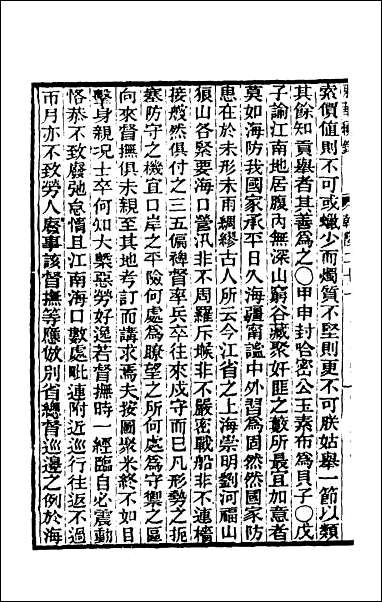 索價値則不可或蠟少而燭質不堅則更不可朕姑舉一節以類
其餘知貢舉者其善爲之〇甲申封哈密公玉素布爲貝子〇戊
子諭江南地居腹內無深山窮谷藏聚奸匪之藪所最宜加意者
莫如海防我國家承平日久海疆甯謐中外習爲固然然國家防
患在於未形未雨綢繆古人所云今江省之上海崇明劉河福山
狼山各緊要海口營汛非不周羅斥堠非不嚴密戰船非不連檣
接艘然俱付之三五偏裨督率兵卒往來戍守而已凡形勢之扼
塞防守之機宜口岸之平險何處爲瞭望之所何處爲守禦之區
向來督撫俱未親至其地考訂而講求焉夫按圖聚米終不如目
擊身親况士卒何知大槩惡勞好逸若督撫時一經臨自必震動
恪恭不致廢弛怠惰且江南海口數處毗連附近巡行往返不過
帀月亦不致勞人廢事該督撫等應倣別省總督巡邊之例於海